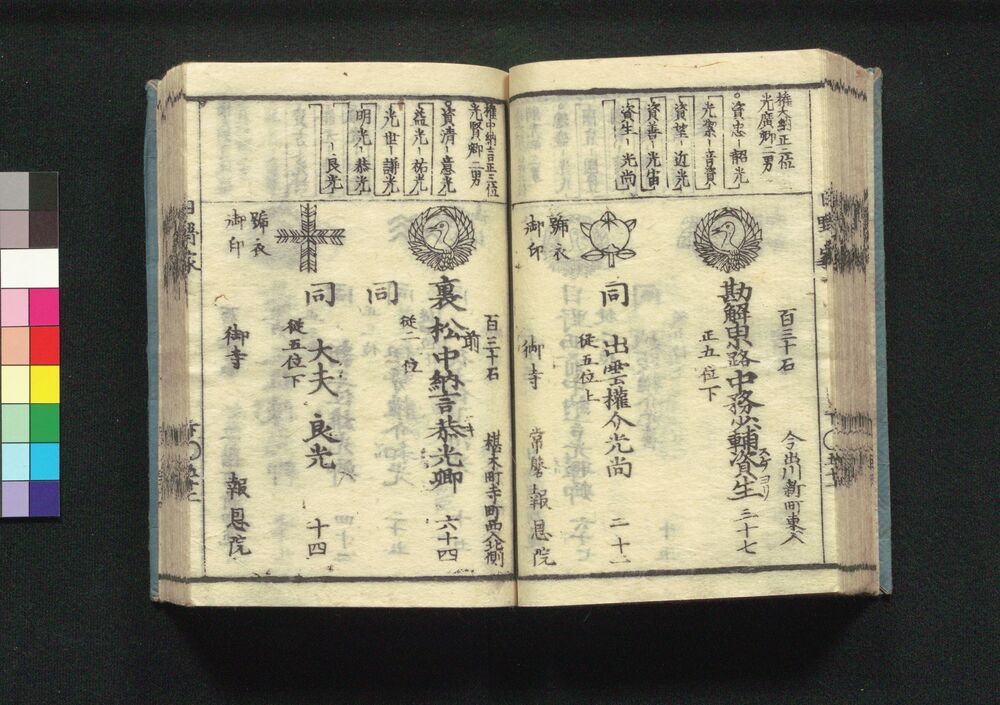 権大納正二位
光廣卿二男
資忠－韶光
光潔－音資
資望－近光
資善－光宙
資生－光尚
百三十石
今出川新町東入
勘解由路中務少輔資生
スケ ヨリ
三十七
正五位下
同
出雲権介光尚
二十一
従五位上
號衣
御印
御寺
常磐報恩院
権中納言正三位
光賢卿二男
資清－意光
益光－祐光
光世－謙光
明光－恭光
－良光
百三十石
椹木町寺町西入北側
裏松前中納言恭光卿
六十四
従二位
同
同
大夫良光
十四
従五位下
號衣
御印
御寺
報恩院
日野家